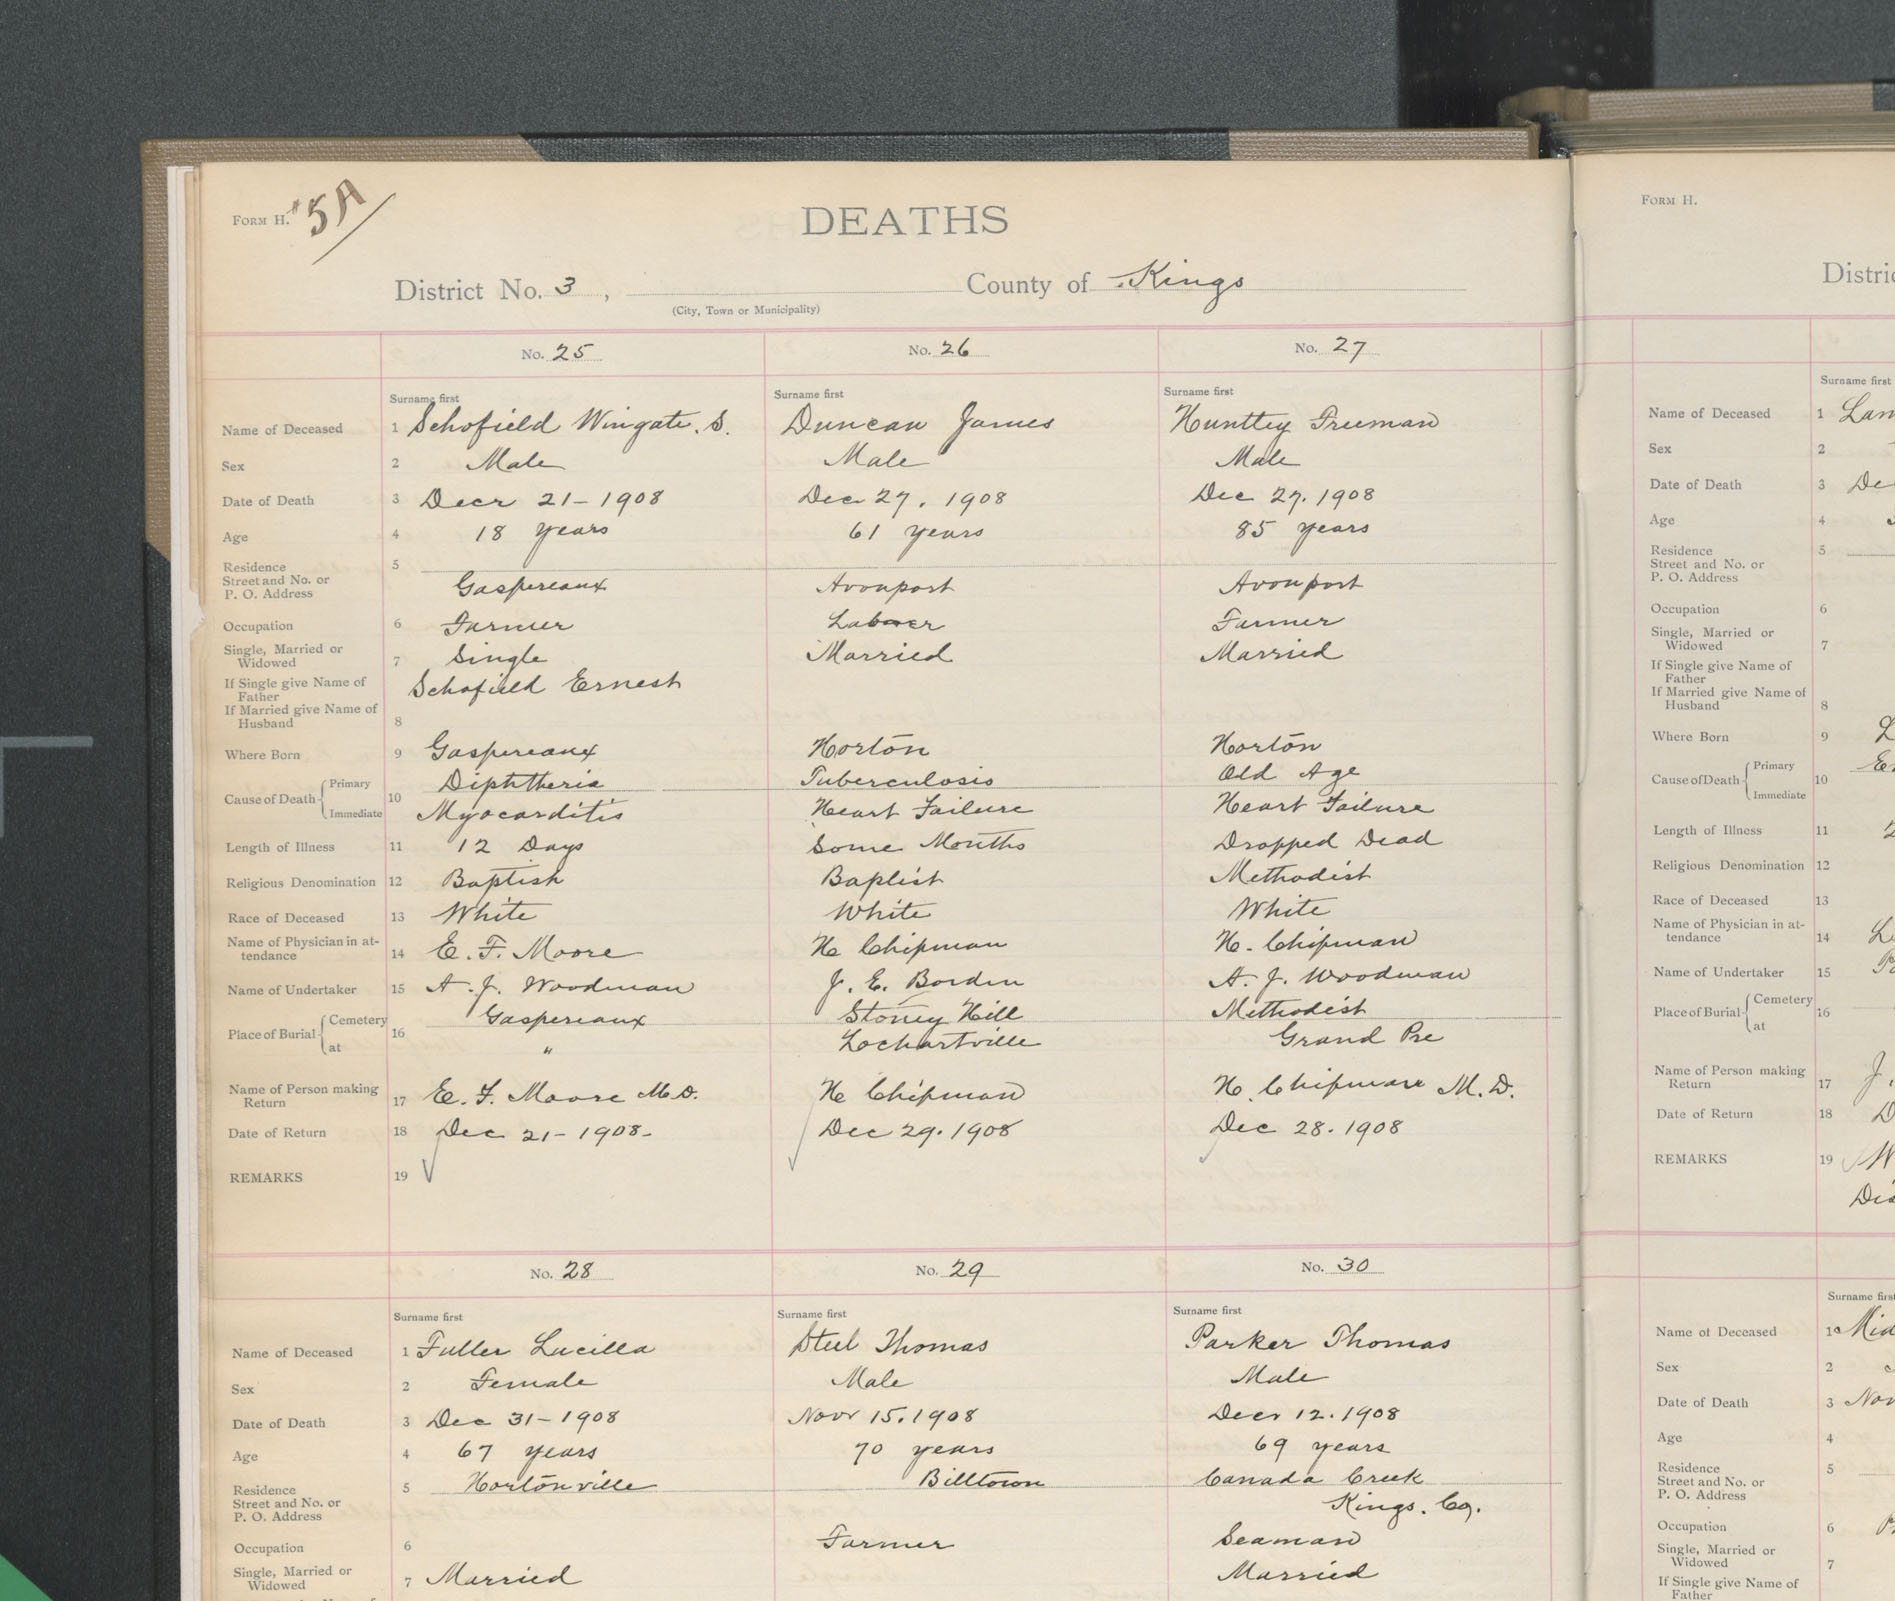 FORM H. #5A
DEATHS
District No. 3, County of Kings
(City, Town or Municipality)
No. 25 No. 26 No. 27
Surname first Surname first Surname first
Name of Deceased 1 Schofield Wingate. S. Duncan James Hunttey Freeman
Sex 2 Male Male Male
Date of Death 3 Decr 21-1908 Dec 27, 1908 Dec 27. 1908
Age 4 18 years 61 years 85 years
Residence 5
Street and No. or
P. O. Address Gaspereaux Avonport Avonport
Occupation 6 Farmer Laborer Farmer
Single, Married or
Widowed 7 Single Married Married
If Single give Name of
Father Schofield Ernest
If Married give Name of
Husband 8
Where Born 9 Gaspereaux Horton Horton
Cause of Death Primary 10 Diphtheria Tuberculosis Old Age
Immediate Myocarditis Heart Failure Heart Failure
Length of Illness 11 12 Days Some Months Dropped Dead
Religious Denomination 12 Baptist Baptist Methodist
Race of Deceased 13 White White White
Name of Physician in at-
tendance 14 E. F. Moore H Chipman H. Chipman
Name of Undertaker 15 A. J. Woodman J. E. Borden A. J. Woodman
Place of Burial Cemetery 16 Gaspereaux Stoney Hill Methodist
at " Lochartville Grand Pre
Name of Person making
Return 17 E. F. Moore M.D. H Chipman H. Chipman M. D.
Date of Return 18 Dec 21-1908- Dec 29. 1908 Dec 28. 1908
REMARKS 19
No. 28 No. 29 No. 30
Surname first Surname first Surname first
Name of Deceased 1 Fuller Lucilla Steel Thomas Parker Thomas
Sex 2 Female Male Male
Date of Death 3 Dec 31-1908 Novr 15. 1908 Decr 12. 1908
Age 4 67 years 70 years 69 years
Residence 5 Hortonville Billtown Canada Creek
Street and No. or
P. O. Address Kings. Co.
Occupation 6 Farmer Seaman
Single, Married or
Widowed 7 Married Married
FORM H.
Surname first
Name of Deceased 1
Sex 2
Date of Death 3
Age 4
Residence 5
Street and No. or
P. O. Address
Occupation 6
Single, Married or
Widowed 7
If Single give Name of
Father
If Married give Name of
Husband 8
Where Born 9
Cause of Death Primary 10
Immediate
Length of Illness 11
Religious Denomination 12
Race of Deceased 13
Name of Physician in at-
tendance 14
Name of Undertaker 15
Place of Burial Cemetery 16
at
Name of Person making
Return 17 J.
Date of Return 18
REMARKS 19
Surname first
Name of Deceased 1
Sex 2
Date of Death 3
Age 4
Residence 5
Street and No. or
P. O. Address
Occupation 6
Single, Married or
Widowed 7
If Single give Name of
Father